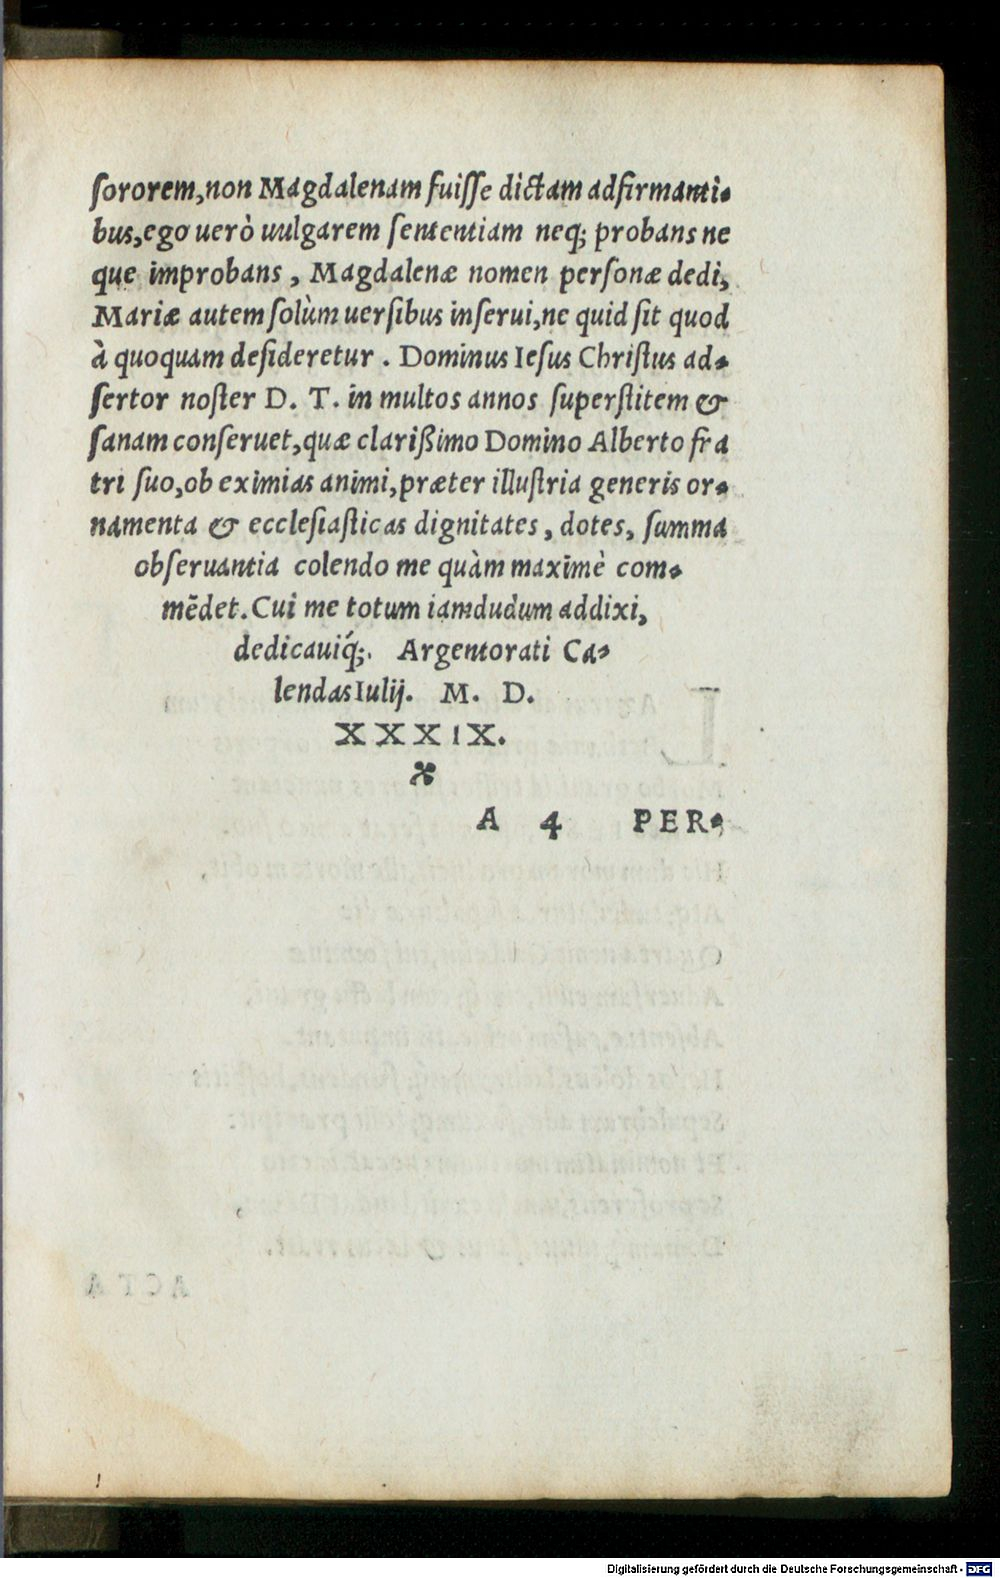 ſororem,non Magdalenam fuiſſe dictam adfirmanti-
bus,ego uerò uulgarem ſententiam neq; probans ne
que improbans , Magdalenæ nomen perſonæ dedi,
Mariæ autem ſolùm uerſibus inſerui,ne quid ſit quod
à quoquam deſideretur . Dominus Ieſus Chriſtus ad-
ſertor noſter D. T. in multos annos ſuperſtitem &
ſanam conſeruet,quæ clarißimo Domino Alberto fra
tri ſuo,ob eximias animi,præter illuſtria generis or-
namenta & eccleſiaſticas dignitates , dotes, ſumma
obſeruantia colendo me quàm maximè com-
mẽdet. Cui me totum iamdudum addixi,
dedicauiq́;. Argentorati Ca-
lendas Iulij. M. D.
XXXIX.
A 4 PER-
Digitalisierung gefördert durch die Deutsche Forschungsgemeinschaft - DFG